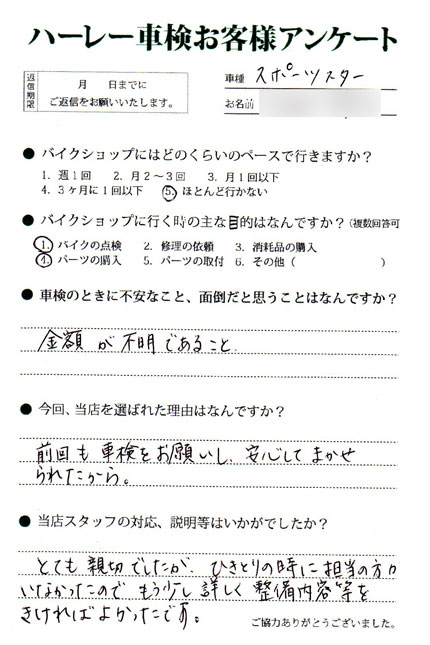 ハーレー車検お客様アンケート
返信期限
月　日までに
ご返信をお願いいたします。
車種 スポーツスター
お名前
● バイクショップにはどのくらいのペースで行きますか？
1. 週1回　2. 月2～3回　3. 月1回以下
4. 3ヶ月に1回以下　5. ほとんど行かない
● バイクショップに行く時の主な目的はなんですか？(複数回答可
1. バイクの点検　2. 修理の依頼　3. 消耗品の購入
4. パーツの購入　5. パーツの取付　6. その他（　　　　　　）
● 車検のときに不安なこと、面倒だと思うことはなんですか？
金額が不明であること.
● 今回、当店を選ばれた理由はなんですか？
前回も車検をお願いし、安心してまかせ
られたから。
● 当店スタッフの対応、説明等はいかがでしたか？
とても親切でしたが、ひきとりの時に担当の方が
いなかったので もう少し詳しく整備内容等を
きければよかったです。
ご協力ありがとうございました。